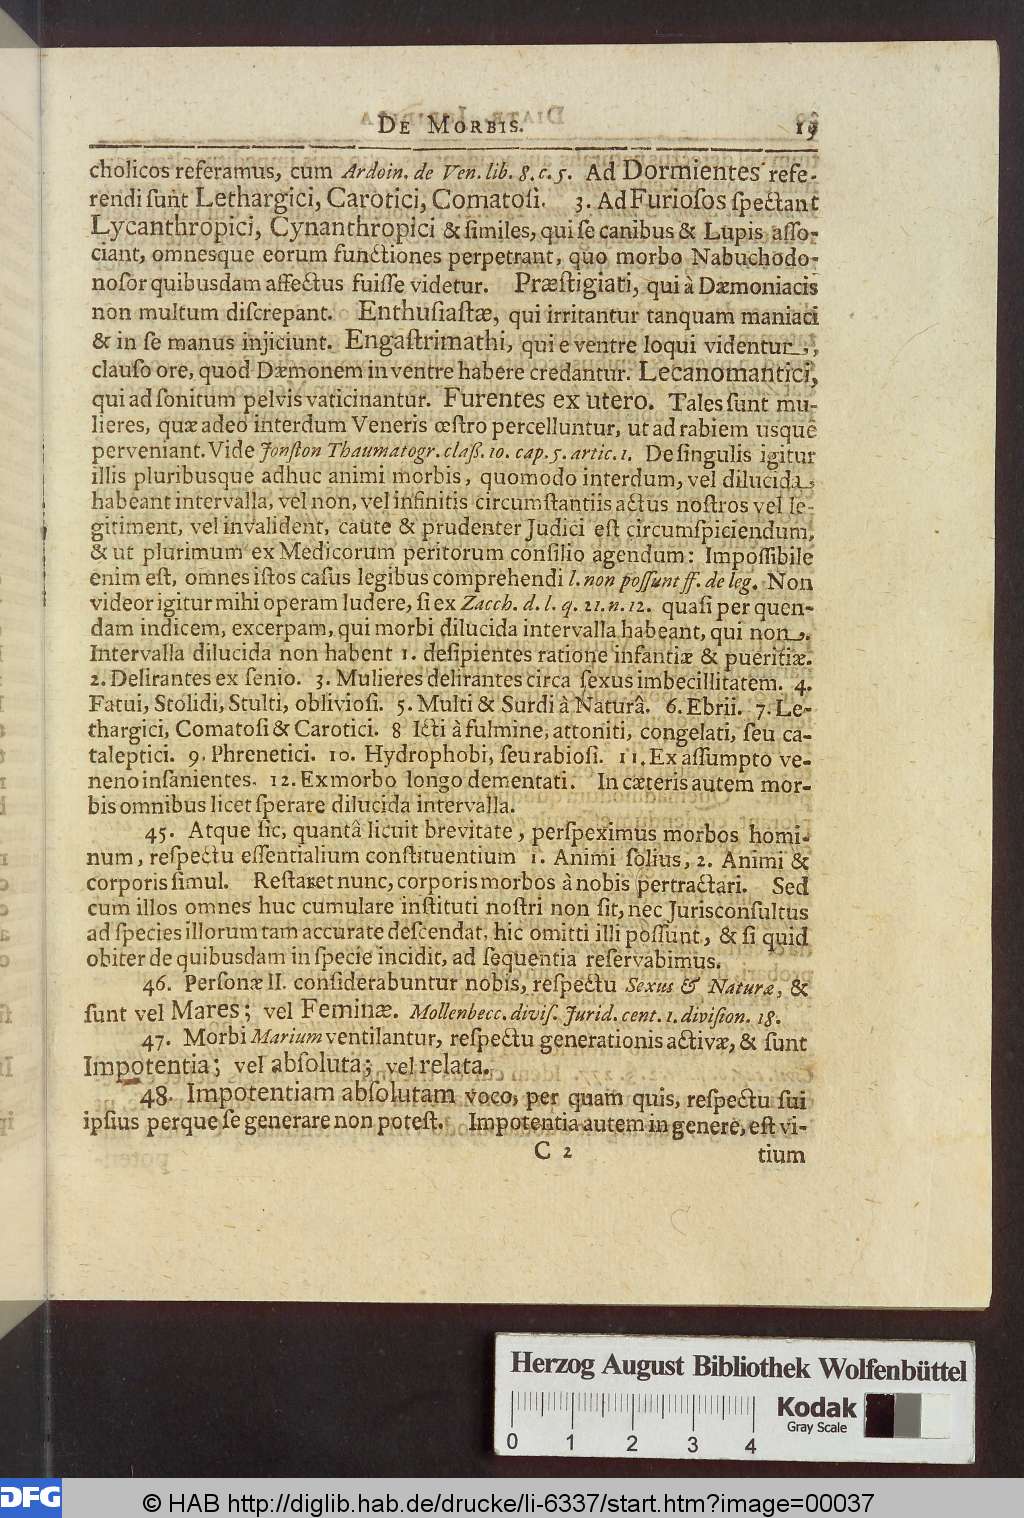 DE MORBIS. 19
cholicos referamus, cum Ardoin. de Ven. lib. 8. c. 5. Ad Dormientes refe-
rendi sunt Lethargici, Carotici, Comatosi. 3. Ad Furiosos spectant
Lycanthropici, Cynanthropici & similes, qui se canibus & Lupis asso-
ciant, omnesque eorum functiones perpetrant, quo morbo Nabuchodo-
nosor quibusdam affectus fuisse videtur. Præstigiati, qui à Dæmoniacis
non multum discrepant. Enthusiastæ, qui irritantur tanquam maniaci
& in se manus injiciunt. Engastrimathi, qui e ventre loqui videntur,
clauso ore, quod Dæmonem in ventre habere credantur. Lecanomantici,
qui ad sonitum pelvis vaticinantur. Furentes ex utero. Tales sunt mu-
lieres, quæ adeò interdum Veneris œstro percelluntur, ut ad rabiem usquè
perveniant. Vide Jonston Thaumatogr. class. 10. cap. 5. artic. 1. De singulis igitur
illis pluribusque adhuc animi morbis, quomodo interdum, vel dilucida
habeant intervalla, vel non, vel infinitis circumstantiis actus nostros vel le-
gitiment, vel invalident, caute & prudenter Judici est circumspiciendum,
& ut plurimum ex Medicorum peritorum consilio agendum: Impossibile
enim est, omnes istos casus legibus comprehendi l. non possunt ff. de leg. Non
videor igitur mihi operam ludere, si ex Zacch. d. l. q. 21. n. 12. quasi per quen-
dam indicem, excerpam, qui morbi dilucida intervalla habeant, qui non.
Intervalla dilucida non habent 1. desipientes ratione infantiæ & pueritiæ.
2. Delirantes ex senio. 3. Mulieres delirantes circa sexus imbecillitatem. 4.
Fatui, Stolidi, Stulti, obliviosi. 5. Multi & Surdi à Naturâ. 6. Ebrii. 7. Le-
thargici, Comatosi & Carotici. 8 Icti à fulmine, attoniti, congelati, seu ca-
taleptici. 9. Phrenetici. 10. Hydrophobi, seu rabiosi. 11. Ex assumpto ve-
neno insanientes. 12. Ex morbo longo dementati. In cæteris autem mor-
bis omnibus licet sperare dilucida intervalla.
45. Atque sic, quantâ licuit brevitate, perspeximus morbos homi-
num, respectu essentialium constituentium 1. Animi solius, 2. Animi &
corporis simul. Restaret nunc, corporis morbos à nobis pertractari. Sed
cum illos omnes huc cumulare instituti nostri non sit, nec Jurisconsultus
ad species illorum tam accurate descendat, hic omitti illi possunt, & si quid
obiter de quibusdam in specie incidit, ad sequentia reservabimus.
46. Personæ II. considerabuntur nobis, respectu Sexus & Naturæ, &
sunt vel Mares; vel Feminæ. Mollenbecc. divis. Jurid. cent. 1. division. 18.
47. Morbi Marium ventilantur, respectu generationis activæ, & sunt
Impotentia; vel absoluta; vel relata.
48. Impotentiam absolutam voco, per quam quis, respectu sui
ipsius perque se generare non potest. Impotentia autem in genere, est vi-
C 2 tium
Herzog August Bibliothek Wolfenbüttel
Kodak
Gray Scale
0 1 2 3 4
DFG
© HAB http://diglib.hab.de/drucke/li-6337/start.htm?image=00037